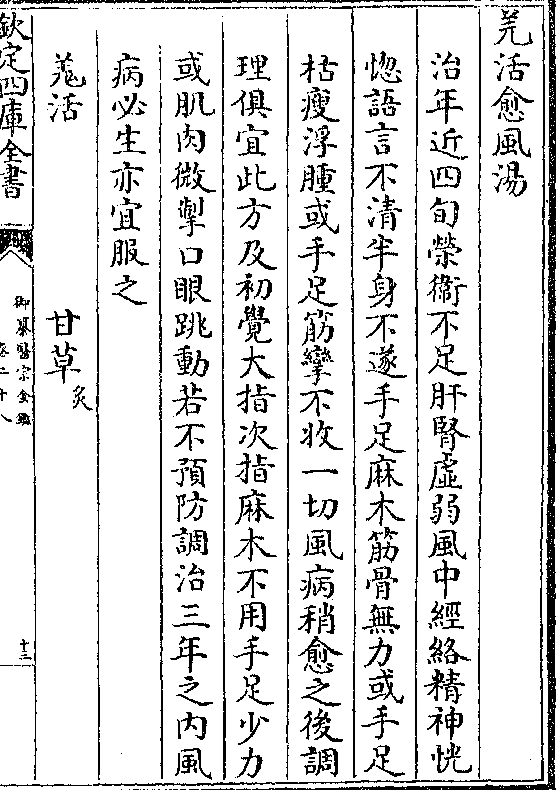 羌活愈風湯
治年近四旬榮衛不足肝腎虛弱風中經絡精神恍
惚語言不清半身不遂手足麻木筋骨無力或手足
枯瘦浮腫或手足筋攣不收一切風病稍愈之後調
理俱宜此方及初覺大指次指麻木不用手足少力
或肌肉微掣口眼跳動若不預防調治三年之內風
病必生亦宜服之
羗活 甘草炙
欽定四庫全書
御纂醫宗金鑑
卷二十八
十三